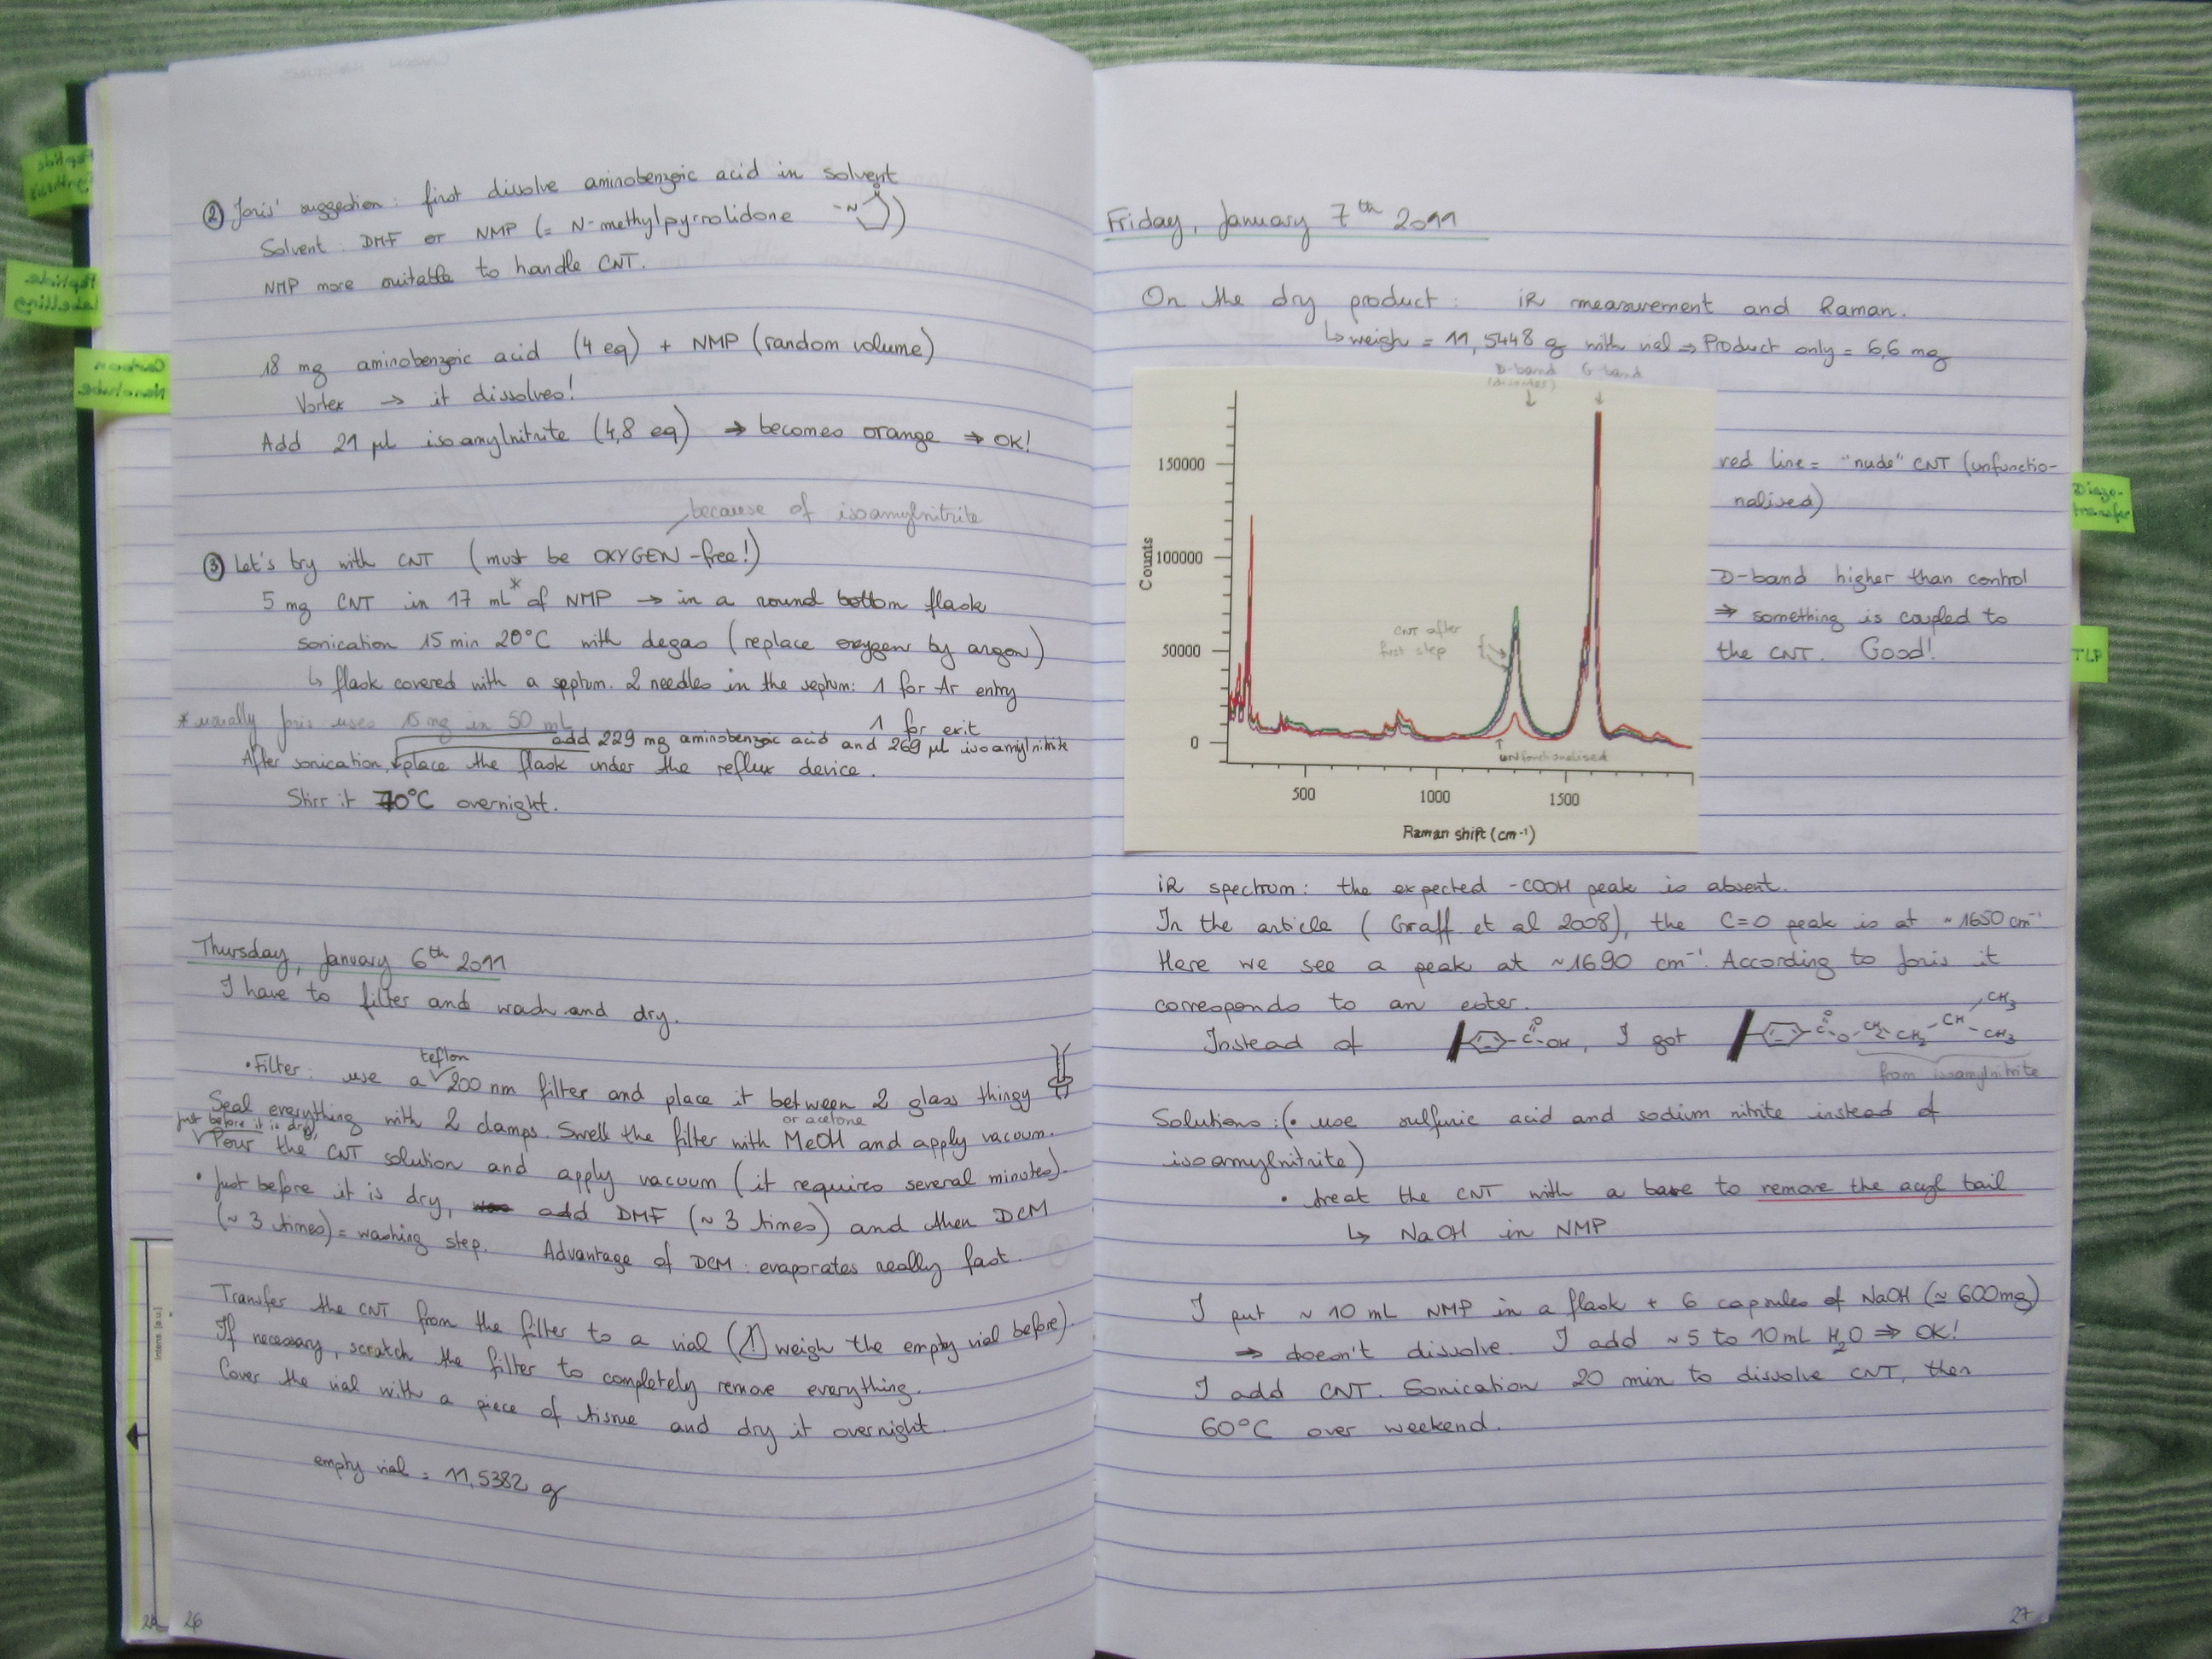 ② Joris' suggestion : first dissolve aminobenzoic acid in solvent
Solvent : DMF or NMP (= N-methylpyrrolidone -N O)
NMP more suitable to handle CNT.
18 mg aminobenzoic acid (4 eq) + NMP (random volume)
Vortex → it dissolves!
Add 21 µl isoamylnitrite (4,8 eq) ⇒ becomes orange ⇒ OK!
because of isoamylnitrite
③ Let's try with CNT (must be OXYGEN-free!)
5 mg CNT in 17 ml* of NMP → in a round bottom flask
sonication 15 min 20°C with degas (replace oxygen by argon)
↳ flask covered with a septum. 2 needles in the septum: 1 for Ar entry
1 for exit
* usually Joris uses 15 mg in 50 mL
add 229 mg aminobenzoic acid and 269 µl isoamylnitrite
After sonication, place the flask under the reflux device.
Stirr it 70°C overnight.
Thursday, January 6th 2011
I have to filter and wash and dry.
• Filter : use a teflon 200 nm filter and place it between 2 glass thingy
Seal everything with 2 clamps. Swell the filter with MeOH or acetone and apply vacuum.
just before it is dry,
Pour the CNT solution and apply vacuum (it requires several minutes).
• Just before it is dry, add DMF (~ 3 times) and then DCM
(~ 3 times) = washing step. Advantage of DCM : evaporates really fast.
Transfer the CNT from the filter to a vial (⚠ weigh the empty vial before).
If necessary, scratch the filter to completely remove everything.
Cover the vial with a piece of tissue and dry it overnight.
empty vial = 11,5382 g
26
Friday, January 7th 2011
On the dry product : iR measurement and Raman.
↳ weigh = 11,5448 g with vial ⇒ Product only = 6,6 mg
D-band G-band
150000
100000
50000
0
Counts
500 1000 1500
Raman shift (cm-1)
CNT after
first step
unfunctionalised
red line = "nude" CNT (unfunctio-
nalised)
D-band higher than control
⇒ something is coupled to
the CNT. Good!
iR spectrum : the expected -COOH peak is absent.
In the article (Graff et al 2008), the C=O peak is at ~1650 cm-1
Here we see a peak at ~1690 cm-1. According to Joris it
corresponds to an ester.
Instead of C O OH, I got C O O CH2 CH2 CH CH3 CH3
from isoamylnitrite
Solutions : (• use sulfuric acid and sodium nitrite instead of
isoamylnitrite)
• treat the CNT with a base to remove the acyl tail
↳ NaOH in NMP
I put ~ 10 mL NMP in a flask + 6 capsules of NaOH (≃ 600mg)
⇒ doesn't dissolve. I add ~ 5 to 10 mL H2O ⇒ OK!
I add CNT. Sonication 20 min to dissolve CNT, then
60°C over weekend.
27
Diazo-
transfer
TLP
Peptide
Labelling
Carbon
Nanotube
Intens. [a.u.]